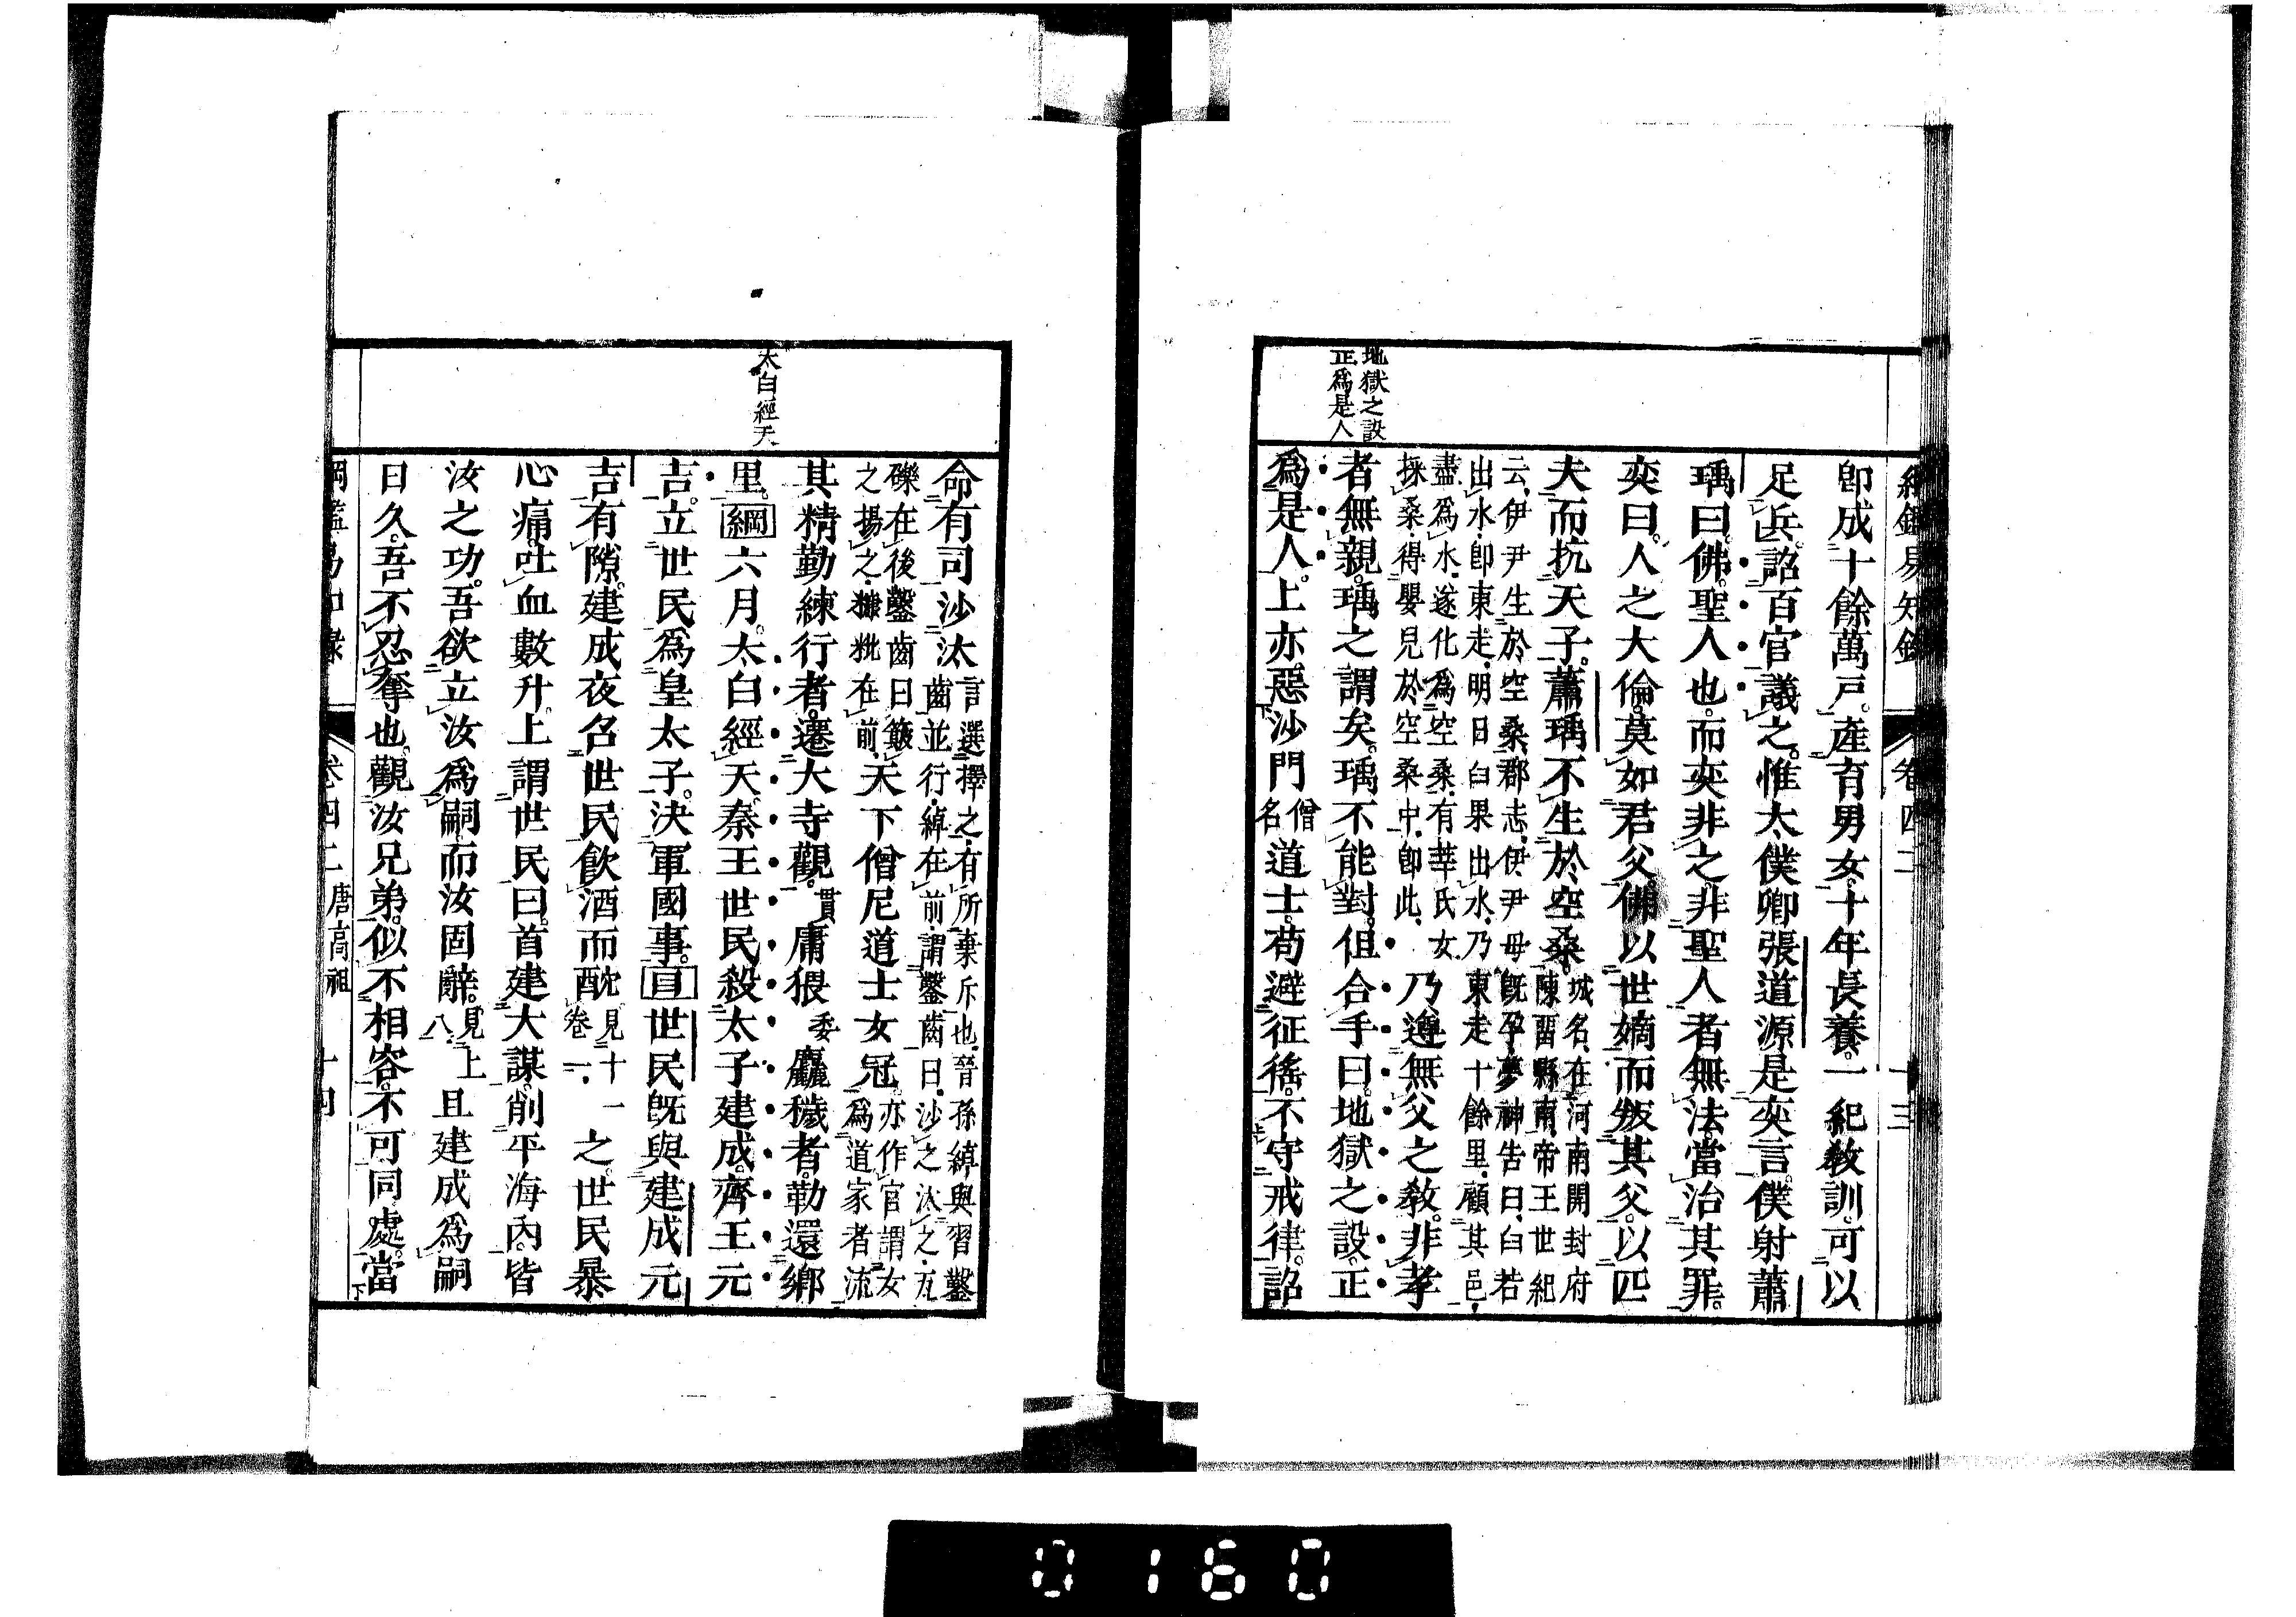 地獄之設
正爲是人
卽成十餘萬戸產育男女十年長養一紀敎訓可以
足兵詔百官議之惟太僕卿張道源是奕言僕射蕭
瑀曰佛聖人也而奕非之非聖人者無法當治其罪
奕曰人之大倫莫如君父佛以世嫡而叛其父以匹
夫而抗天子蕭瑀不生於空桑
城名在河南開封府
陳畱縣南帝王世紀
云伊尹生於空桑郡志伊尹母旣孕夢神告曰臼若
出水卽東走明日臼果出水乃東走十餘里顧其邑
盡爲水遂化爲空桑有莘氏女
採桑得嬰兒於空桑中卽此
乃遵無父之敎非孝
者無親瑀之謂矣瑀不能對但合手曰地獄之設正
爲是人上亦惡沙門
僧
名
道士苟避征徭不守戒律詔
太白經天
命有司沙汰
言選擇之有所棄斥也晉孫綽與習鑿
齒並行綽在前謂鑿齒曰沙之汰之瓦
礫在後鑿齒曰簸
之揚之糠粃在前
天下僧尼道士女冠
亦作官謂女
爲道家者流
其精勤練行者遷大寺觀
貫
庸猥
委
麤穢者勒還鄉
里綱六月太白經天秦王世民殺太子建成齊王元
吉立世民爲皇太子決軍國事目世民旣與建成元
吉有隙建成夜召世民飮酒而酖
見十一
卷一
之世民暴
心痛吐血數升上謂世民曰首建大謀削平海內皆
汝之功吾欲立汝爲嗣而汝固辭
見上
八
且建成爲嗣
日久吾不忍奪也觀汝兄弟似不相容不可同處當
卷四二 唐高祖
0160